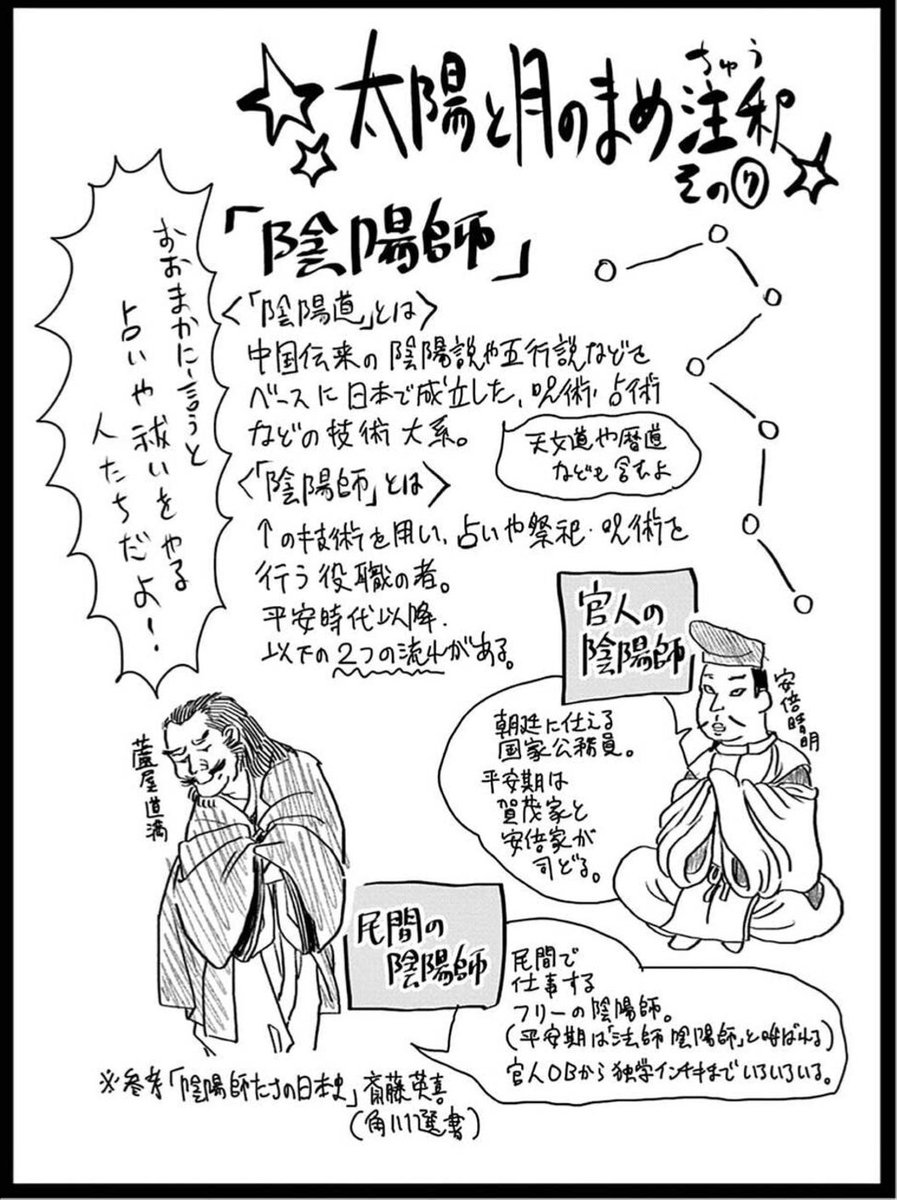 ☆☆太陽と月のまめ注釈☆
ちゅう
その⑦
「陰陽師」
おおまかに言うと
占いや祓いをやる
人たちだよ！
〈「陰陽道」とは〉
中国伝来の陰陽説や五行説などを
ベースに日本で成立した、呪術・占術
などの技術大系。
天文道や暦道
なども含むよ
〈「陰陽師」とは〉
↑の技術を用い、占いや祭祀・呪術を
行う役職の者。
平安時代以降、
以下の2つの流れがある。
官人の
陰陽師
安倍晴明
朝廷に仕える
国家公務員。
平安期は
賀茂家と
安倍家が
司どる。
蘆屋道満
民間の
陰陽師
民間で
仕事する
フリーの陰陽師。
(平安期は「法師陰陽師」と呼ばれる)
官人OBから独学インチキまでいろいろいる。
※参考「陰陽師たちの日本史」斎藤英喜
(角川選書)